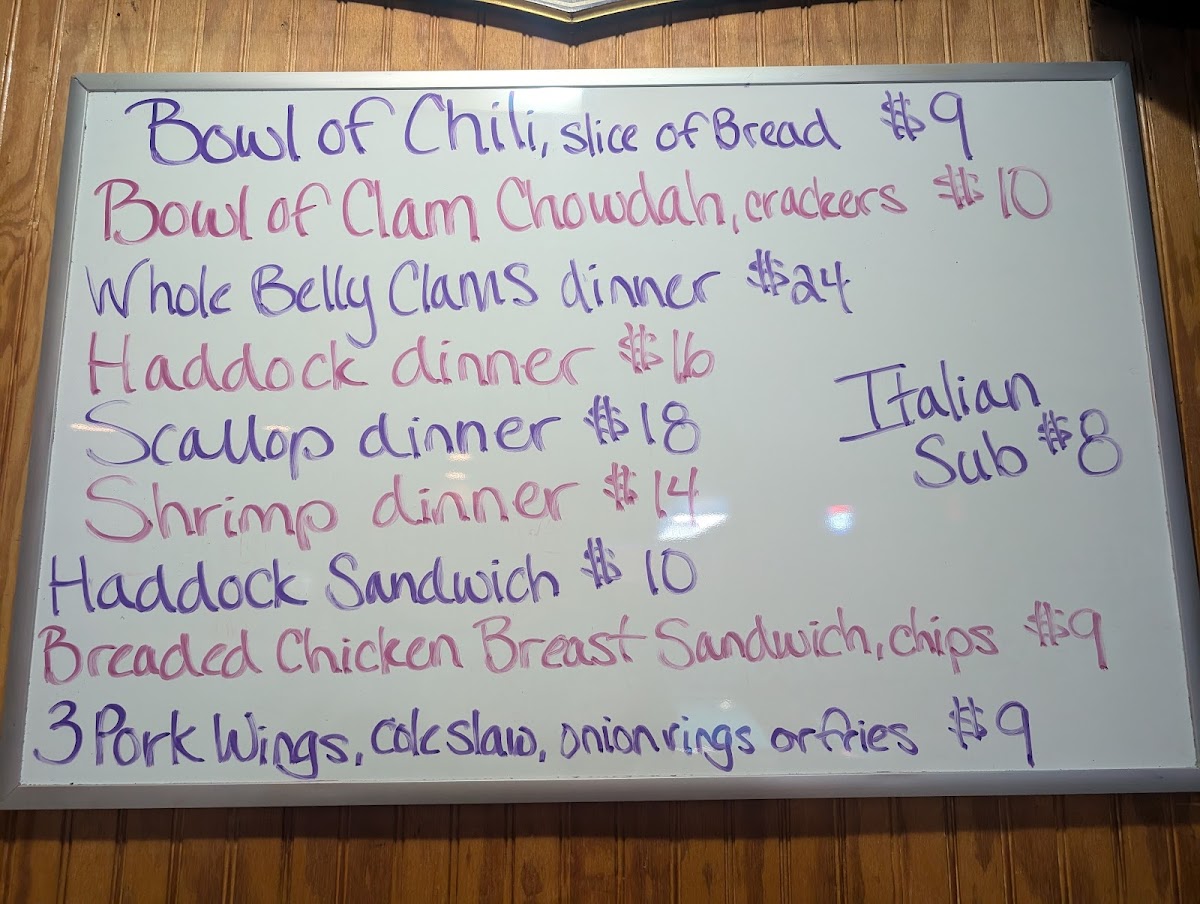 Bowl of Chili, slice of Bread $9
Bowl of Clam Chowdah, crackers $10
Whole Belly Clams dinner $24
Haddock dinner $16
Scallop dinner $18
Shrimp dinner $14
Haddock Sandwich $10
Breaded Chicken Breast Sandwich, chips $9
3 Pork Wings, coleslaw, onion rings or fries $9
Italian
Sub $8